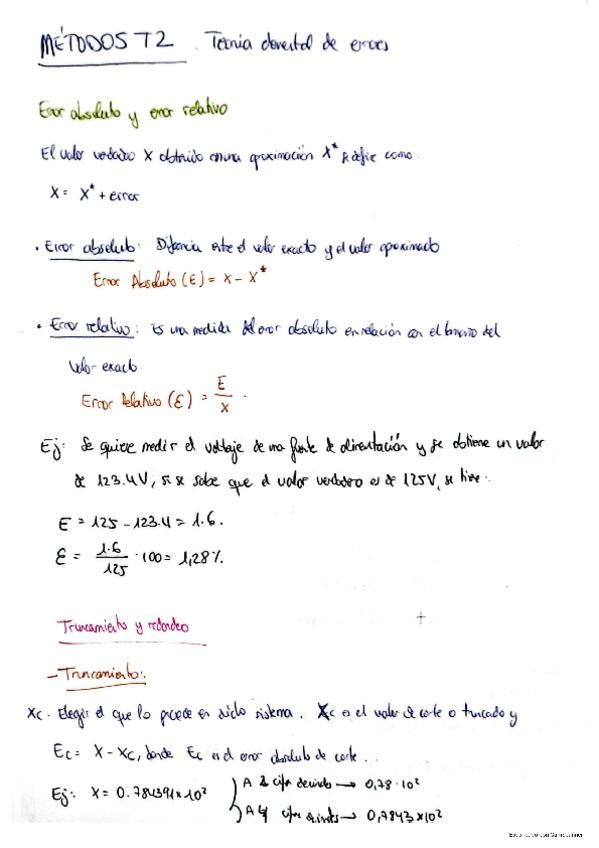 MÉTODOS T2. Teoría elemental de errores
Error absoluto y error relativo
El valor verdadero X obtenido con una aproximación X* se define como
X = X* + error
· Error absoluto: Diferencia entre el valor exacto y el valor aproximado
Error Absoluto (E) = X - X*
· Error relativo: Es una medida del error absoluto en relación con el tamaño del
valor exacto.
Error Relativo (Ɛ) = E/X.
Ej: Se quiere medir el voltaje de una fuente de alimentación y se obtiene un valor
de 123.4V, si se sabe que el valor verdadero es de 125V, se tiene:
E = 125 - 123.4 = 1.6.
Ɛ = 1.6/125 · 100 = 1,28%.
Truncamiento y redondeo
- Truncamiento:
Xc. Elegir el que lo precede en dicho sistema. Xc es el valor de corte o truncado y
Ec = X - Xc, donde Ec es el error absoluto de corte...
Ej: X = 0.784391×10²
A 2 cifra → 0,78·10²
A 4 cifras → 0,7843×10²